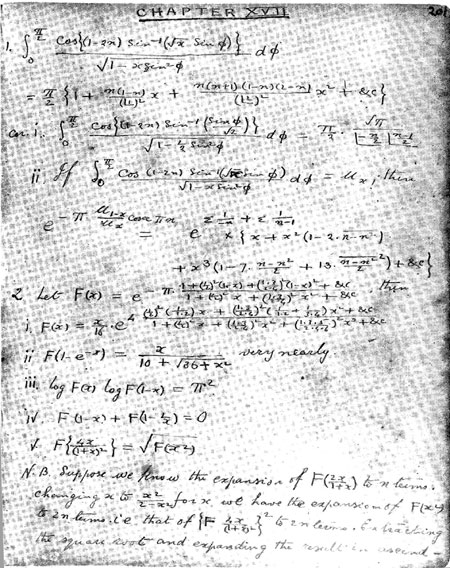 CHAPTER XVII
201
1. ∫₀^{π/2} cos{(1-2n) sin⁻¹(√x sin φ)} / √(1 - x sin²φ) dφ
= π/2 {1 + n(1-n)/(⌊1)² x + n(n+1)(1-n)(2-n)/(⌊2)² x² + &c}
cor. i. ∫₀^{π/2} cos{(1-2n) sin⁻¹(sin φ/√2)} / √(1 - ½ sin²φ) dφ = π/2 · √π / (⌊-n/2 ⌊(n-1)/2)
ii. If ∫₀^{π/2} cos{(1-2n) sin⁻¹(√x sin φ)} / √(1 - x sin²φ) dφ = u_x, then
e^{-π u_{1-x}/u_x cosec πn} = e^{Σ 1/-n + Σ 1/n-1}
× {x + x²(1 - 2·n-n²)
+ x³(1 - 7·(n-n²)/2 + 13·(n-n²)²/) + &c}
2. Let F(x) = e^{-π (1 + (½)²(1-x) + (1·3/2·4)²(1-x)² + &c) / (1 + (½)² x + (1·3/2·4)² x² + &c)}, then
i. F(x) = x/16 · e^{4 }
ii. F(1-e^{-x}) = x / (10 + √(36 + x²)) very nearly.
iii. log F(x) log F(1-x) = π².
iv. F(1-x) + F(1-1/x) = 0
v. F{4x/(1+x)²} = √F(x²)
N.B. Suppose we know the expansion of F(2x/(1+x)) to n terms.
changing x to x²/(2-x²) for x we have the expansion of F(x²)
to 2n terms. i.e that of {F 4x/(1+x)²}² to 2n terms. Extracting
the square root and expanding the result in ascend-